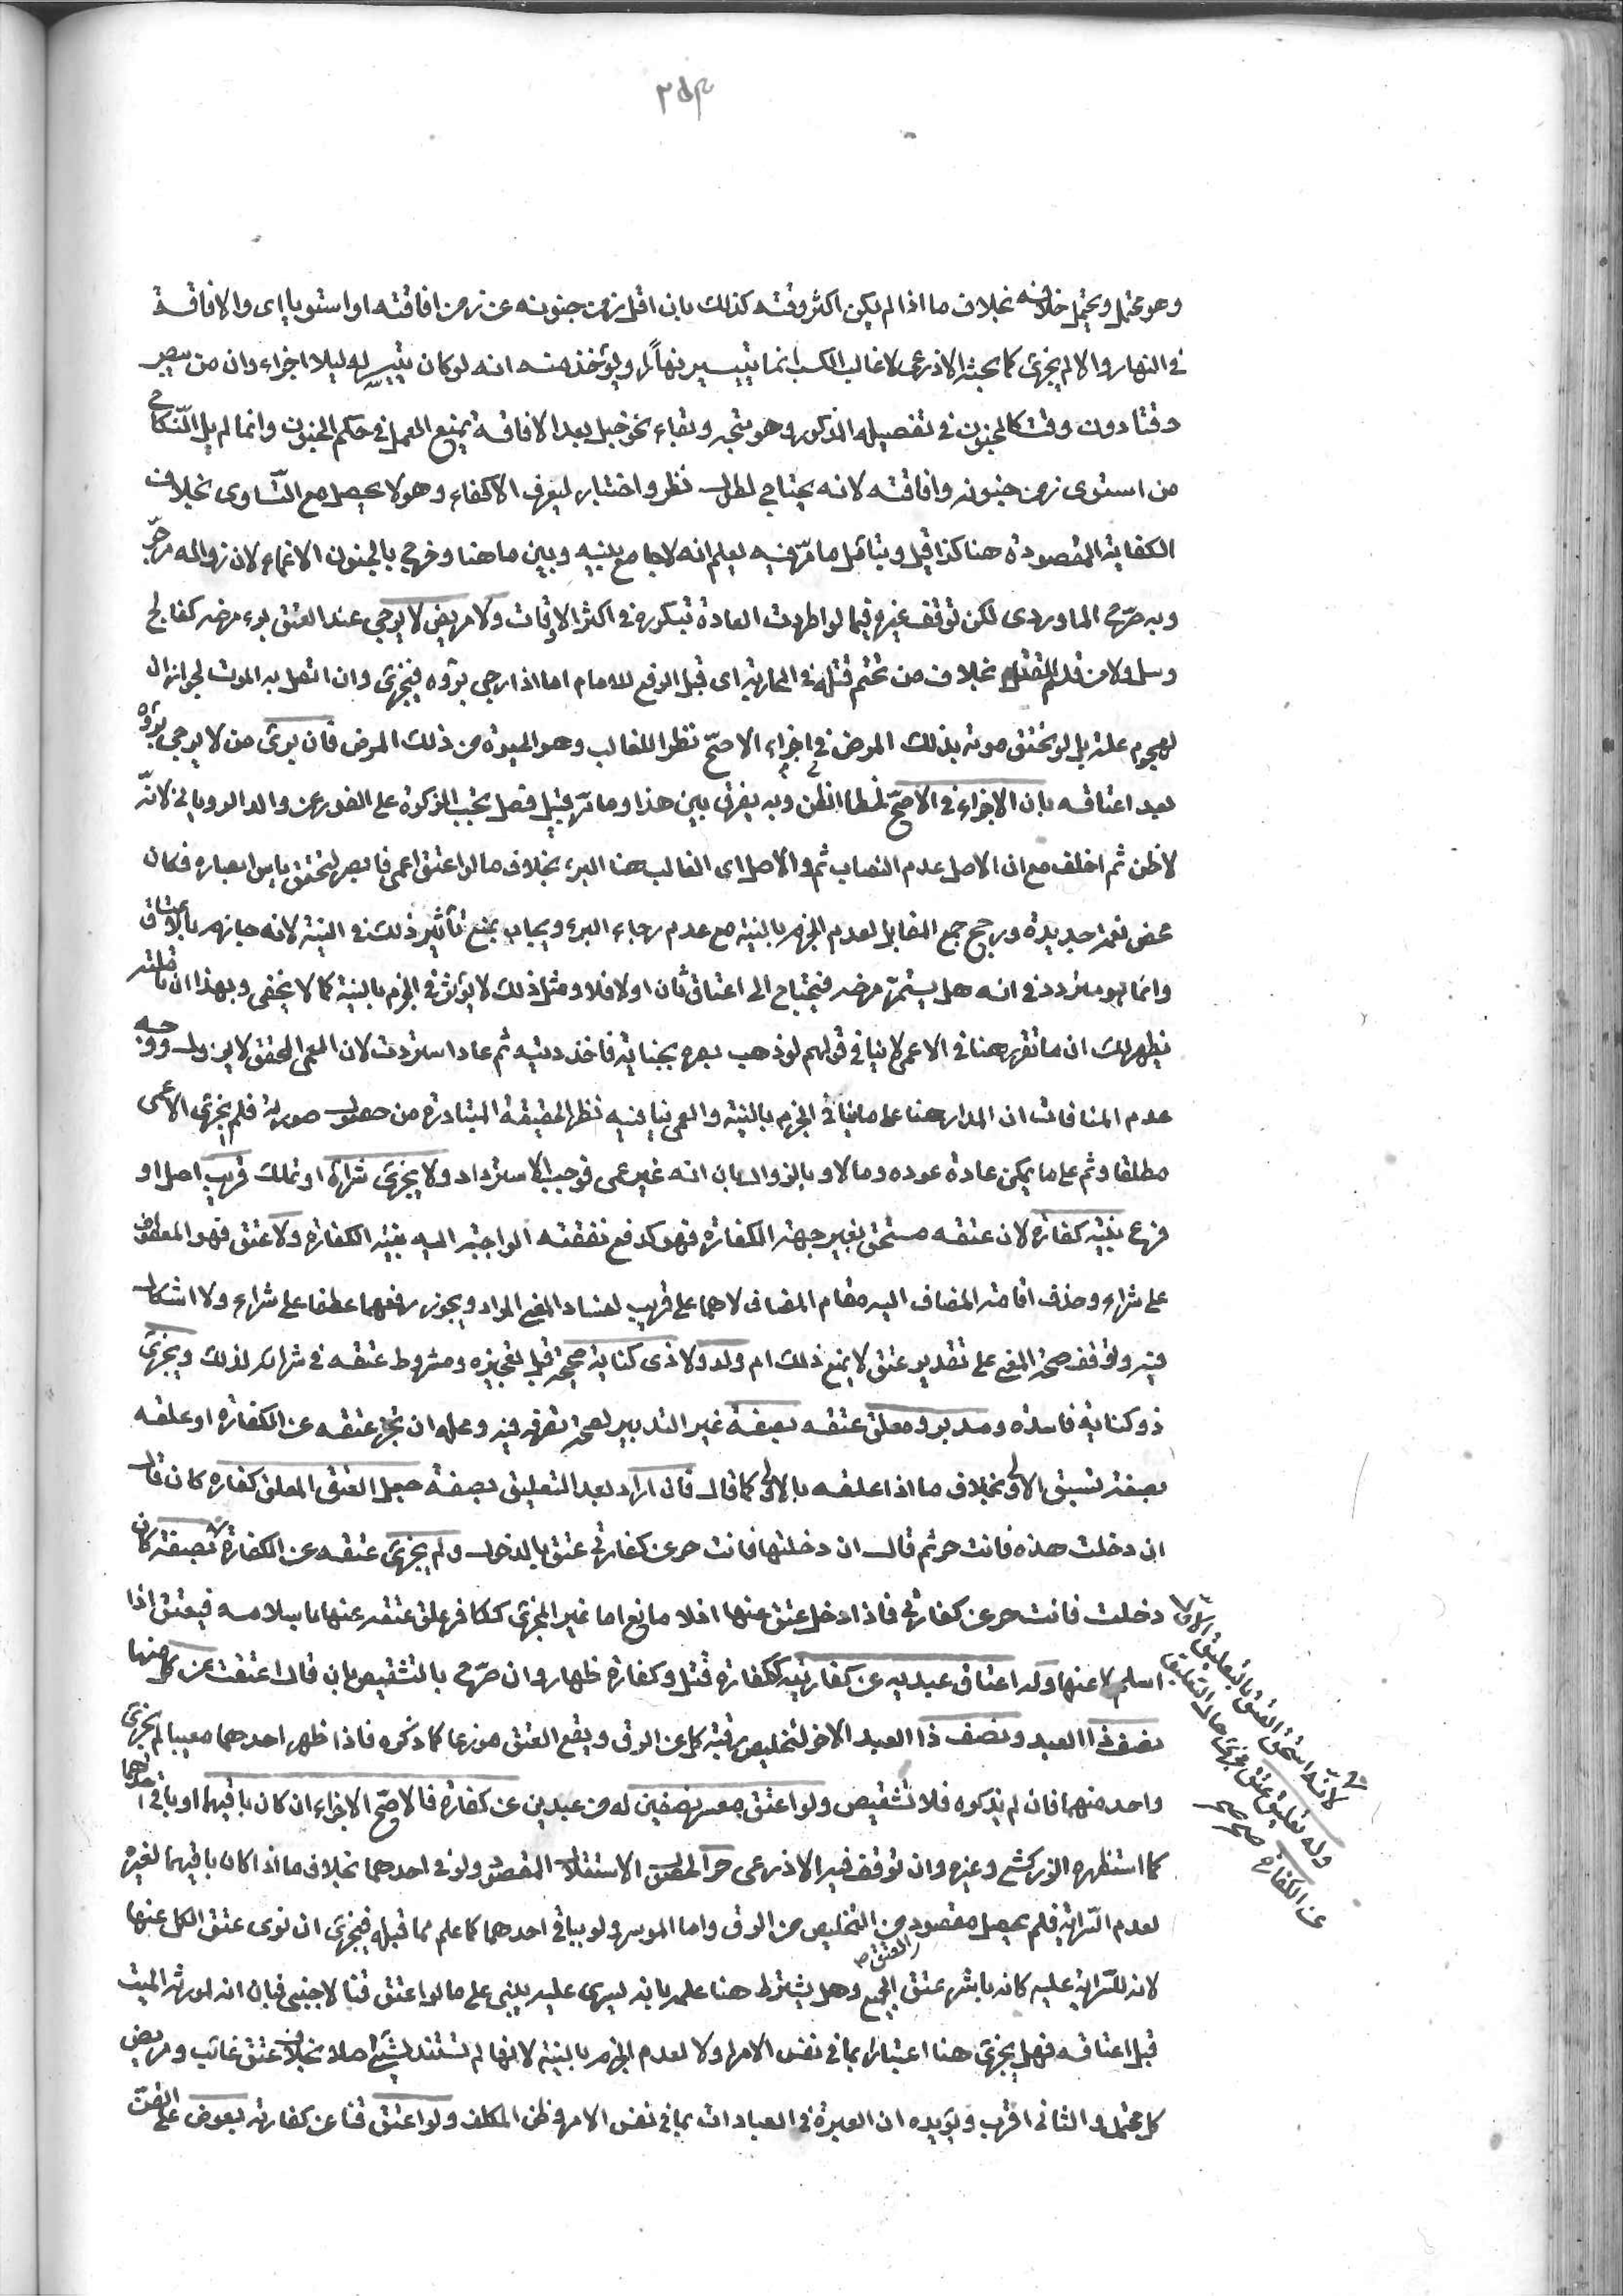 وهو محتمل ويحتمل خلافه بخلاف ما اذا لم يكن اكثر وقته كذلك بان اقل زمن جنونه عن زمن افاقته او استويا اى والافاقة
فى النهار والا لم يجزئ كما بحثه الاذرعى لان غالب الكسب انما يتيسر نهارا ويؤخذ منه انه لو كان يتيسر له ليلا اجزاء وان من يبصر
وقتا دون وقت كالمجنون فى تفصيله المذكور وهو متجه وبقاء نحو خبل بعد الافاقة يمنع العمل فى حكم الجنون وانما لم يل النكاح
من استوى زمن جنونه وافاقته لانه يحتاج لطول نظر واختبار ليعرف الاكفاء وهو لا يحصل مع التساوى بخلاف
الكفاية المقصودة هنا كذا قيل ويتامل ما مر فيه ليعلم انه لا جامع بينه وبين ما هنا وخرج بالجنون الاغماء لان زواله مرجو
وبه صرح الماوردى لكن توقف غيره فيما لو اطردت العادة بتكرره فى اكثر الاوقات ولا مريض لا يرجى عند العتق برء مرضه كفالج
وسل ولا من قدم للقتل بخلاف من تحتم قتله فى المحاربة اى قبل الرفع للامام اما اذا رجى برؤه فيجزئ وان اتصل به الموت لجواز ان
لهجوم علة بل لو تحقق موته بذلك المرض فى اجزاء الاصح نظرا للغالب وهو الميوة من ذلك المرض فان برئ من لا يرجى برؤه
بعد اعتاقه بان الاجزاء فى الاصح لخطا الظن وبه يفرق بين هذا وما مر قبيل فصل تجب الزكوة على الفور عن والد الرويانى لانه
لا ظن ثم اخلف مع ان الاصل عدم النصاب ثم والاصل اى الغالب هنا البرء بخلاف ما لو اعتق اعمى فابصر لتحقق ياس ابصاره فكان
محض نعمة جديدة ورجح جمع المقابل لعدم الجزم بالنية مع عدم رجاء البرء ويجاب بمنع تأثير ذلك فى النية لانه جازم بالاعتاق
وانما هو متردد فى انه هل يستمر مرضه فيحتاج الى اعتاق ثان او لا فلا ومثل ذلك لا يؤثر فى الجزم بالنية كما لا يخفى وبهذا ان تاملته
يظهر لك ان ما تقرر هنا فى الاعمى لا ينافى قولهم لو ذهب بصره بجناية فاخذ ديته ثم عاد استردت لان العمى المحقق لا يزول ووجه
عدم المنافات ان المدار هنا على ما ينافى الجزم بالنية والعمى ينافيه نظر الحقيقة المتبادرة من حصول صورته فلم يجزئ الاعمى
مطلقا وثم على ما يمكن عادة عوده وما لا وبالزوال بان انه غير عمى فوجب الاسترداد ولا يجزئ شراء او تملك قريب اصل او
فرع بنية كفارة لان عتقه مستحق بغير جهة الكفارة فهو كدفع نفقته الواجبة اليه بنية الكفارة ولا عتق فهو المعطوف
على شراء وحذف اقامة المضاف اليه مقام المضاف لا هما على قريب لفساد المعنى المراد ويجوز رفعهما عطفا على شراء ولا اشكال
فيه وتوقف صحة المعنى على تقدير عتق لا يمنع ذلك ام ولد ولا ذى كتابة صحيحة قبل تعجيزه ومشروط عتقه فى شرائه لذلك ويجزئ
ذو كتابة فاسدة ومدبر ومعلق عتقه بصفة غير التدبير لصحة تصرفه فيه وعمله ان نجز عتقه عن الكفارة او علقه
بصفة تسبق الاولى بخلاف ما اذا علقه بالاولى كما قال فان اراد بعد التعليق بصفة جعل العتق المعلق كفارة كان قال
ان دخلت هذه فانت حر ثم قال ان دخلتها فانت حر عن كفارتى عتق بالدخول ولم يجزئ عتقه عن الكفارة بصفة كان
دخلت فانت حر عن كفارتى فاذا دخل عتق عنها اذ لا مانع اما غير المجزئ ككافر علق عتقه عنها باسلامه فيعتق اذا
اسلم لا عنها وله اعتاق عبديه عن كفارتيه ككفارة قتل وكفارة ظهار وان صرح بالتشقيص بان قال اعتقت عن كل منهما
نصف ذا العبد ونصف ذا العبد الاخر لتخليص رقبة كل عن الرق ويقع العتق موزعا كما ذكره فاذا ظهر احدهما معيبا لم يجزئ
واحد منهما فان لم يذكره فلا تشقيص ولو اعتق معسر نصفين له من عبدين عن كفارة فالاصح الاجزاء ان كان باقيهما او باقى احدهما
كما استظهره الزركشى وغيره وان توقف فيه الاذرعى حرا لحصول الاستقلال المقصود ولو فى احدهما بخلاف ما اذا كان باقيهما لغيره
لعدم السراية فلم يحصل مقصود من التخليص من الرق واما الموسر ولو بباقى احدهما كما علم مما قبله فيجزئ ان نوى عتق الكل عنها
لانه للسراية عليه كانه باشر عتق الجميع وهل يشترط هنا علمه بانه يسرى عليه يبنى على ما لو اعتق قنا لاجنبى فبان انه لمورثه الميت
المعتق صح
قبل اعتاقه فهل يجزئ هنا اعتبارا بما فى نفس الامر او لا لعدم الجزم بالنية لانها لم تستند لشئ اصلا بخلاف عتق غائب ومريض
كل محتمل والثانى اقرب ويؤيده ان العبرة فى العبادات بما فى نفس الامر وظن المكلف ولو اعتق قنا عن كفارته بعوض على القن
لانه استحق العتق بالتعليق الاول
وله تعليق عتق مجزئ حال التعليق
عن الكفارة